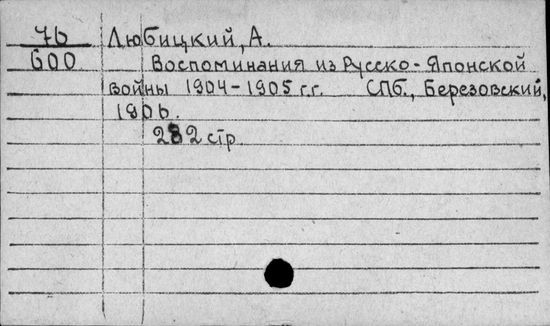 76 Любицкий, А.
600 Воспоминания из Русско-Японской
войны 1904-1905 г.г. СПб., Березовский,
1906.
282 стр.